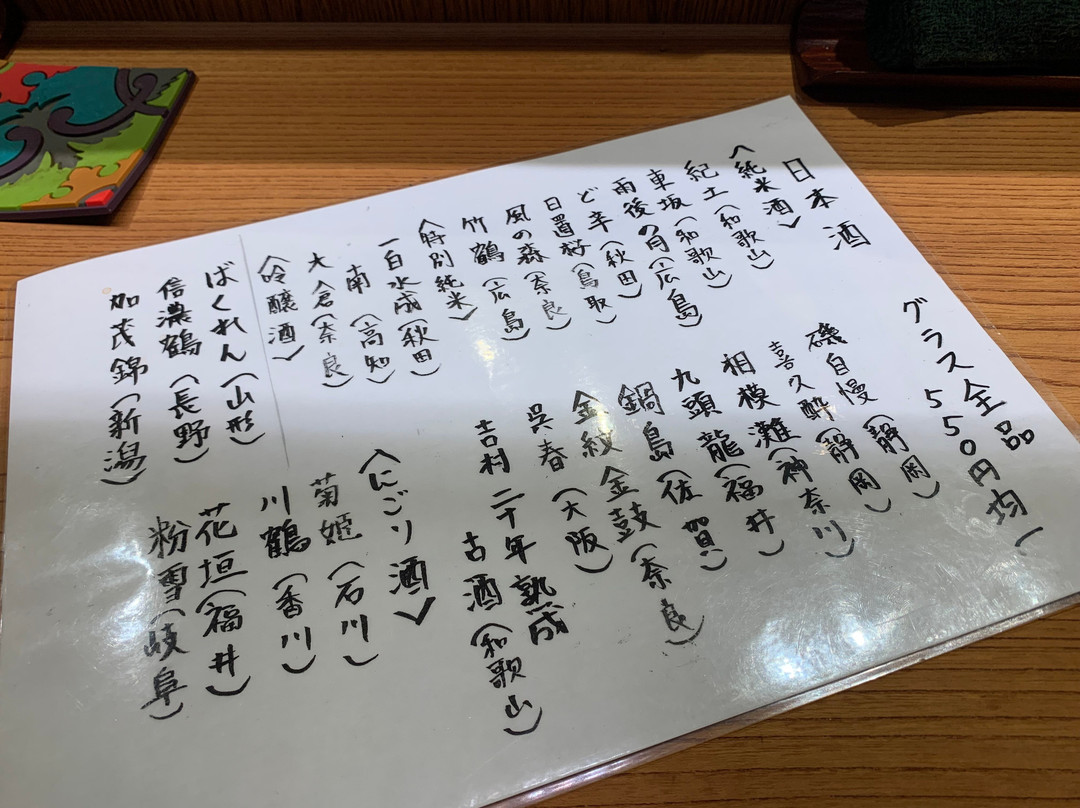 日本酒
グラス全品
550円均一
〈純米酒〉
紀土(和歌山)
車坂(和歌山)
雨後の月(広島)
ど辛(秋田)
日置桜(鳥取)
風の森(奈良)
竹鶴(広島)
〈特別純米〉
一白水成(秋田)
南(高知)
大倉(奈良)
〈吟醸酒〉
ばくれん(山形)
信濃鶴(長野)
加茂錦(新潟)
磯自慢(静岡)
喜久酔(静岡)
相模灘(神奈川)
九頭龍(福井)
鍋島(佐賀)
金紋金鼓(奈良)
呉春(大阪)
吉村二十年熟成
古酒(和歌山)
〈にごり酒〉
菊姫(石川)
川鶴(香川)
花垣(福井)
粉雪(岐阜)